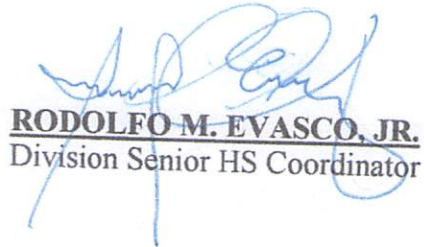 RODOLFO M. EVASCO, JR.
Division Senior HS Coordinator